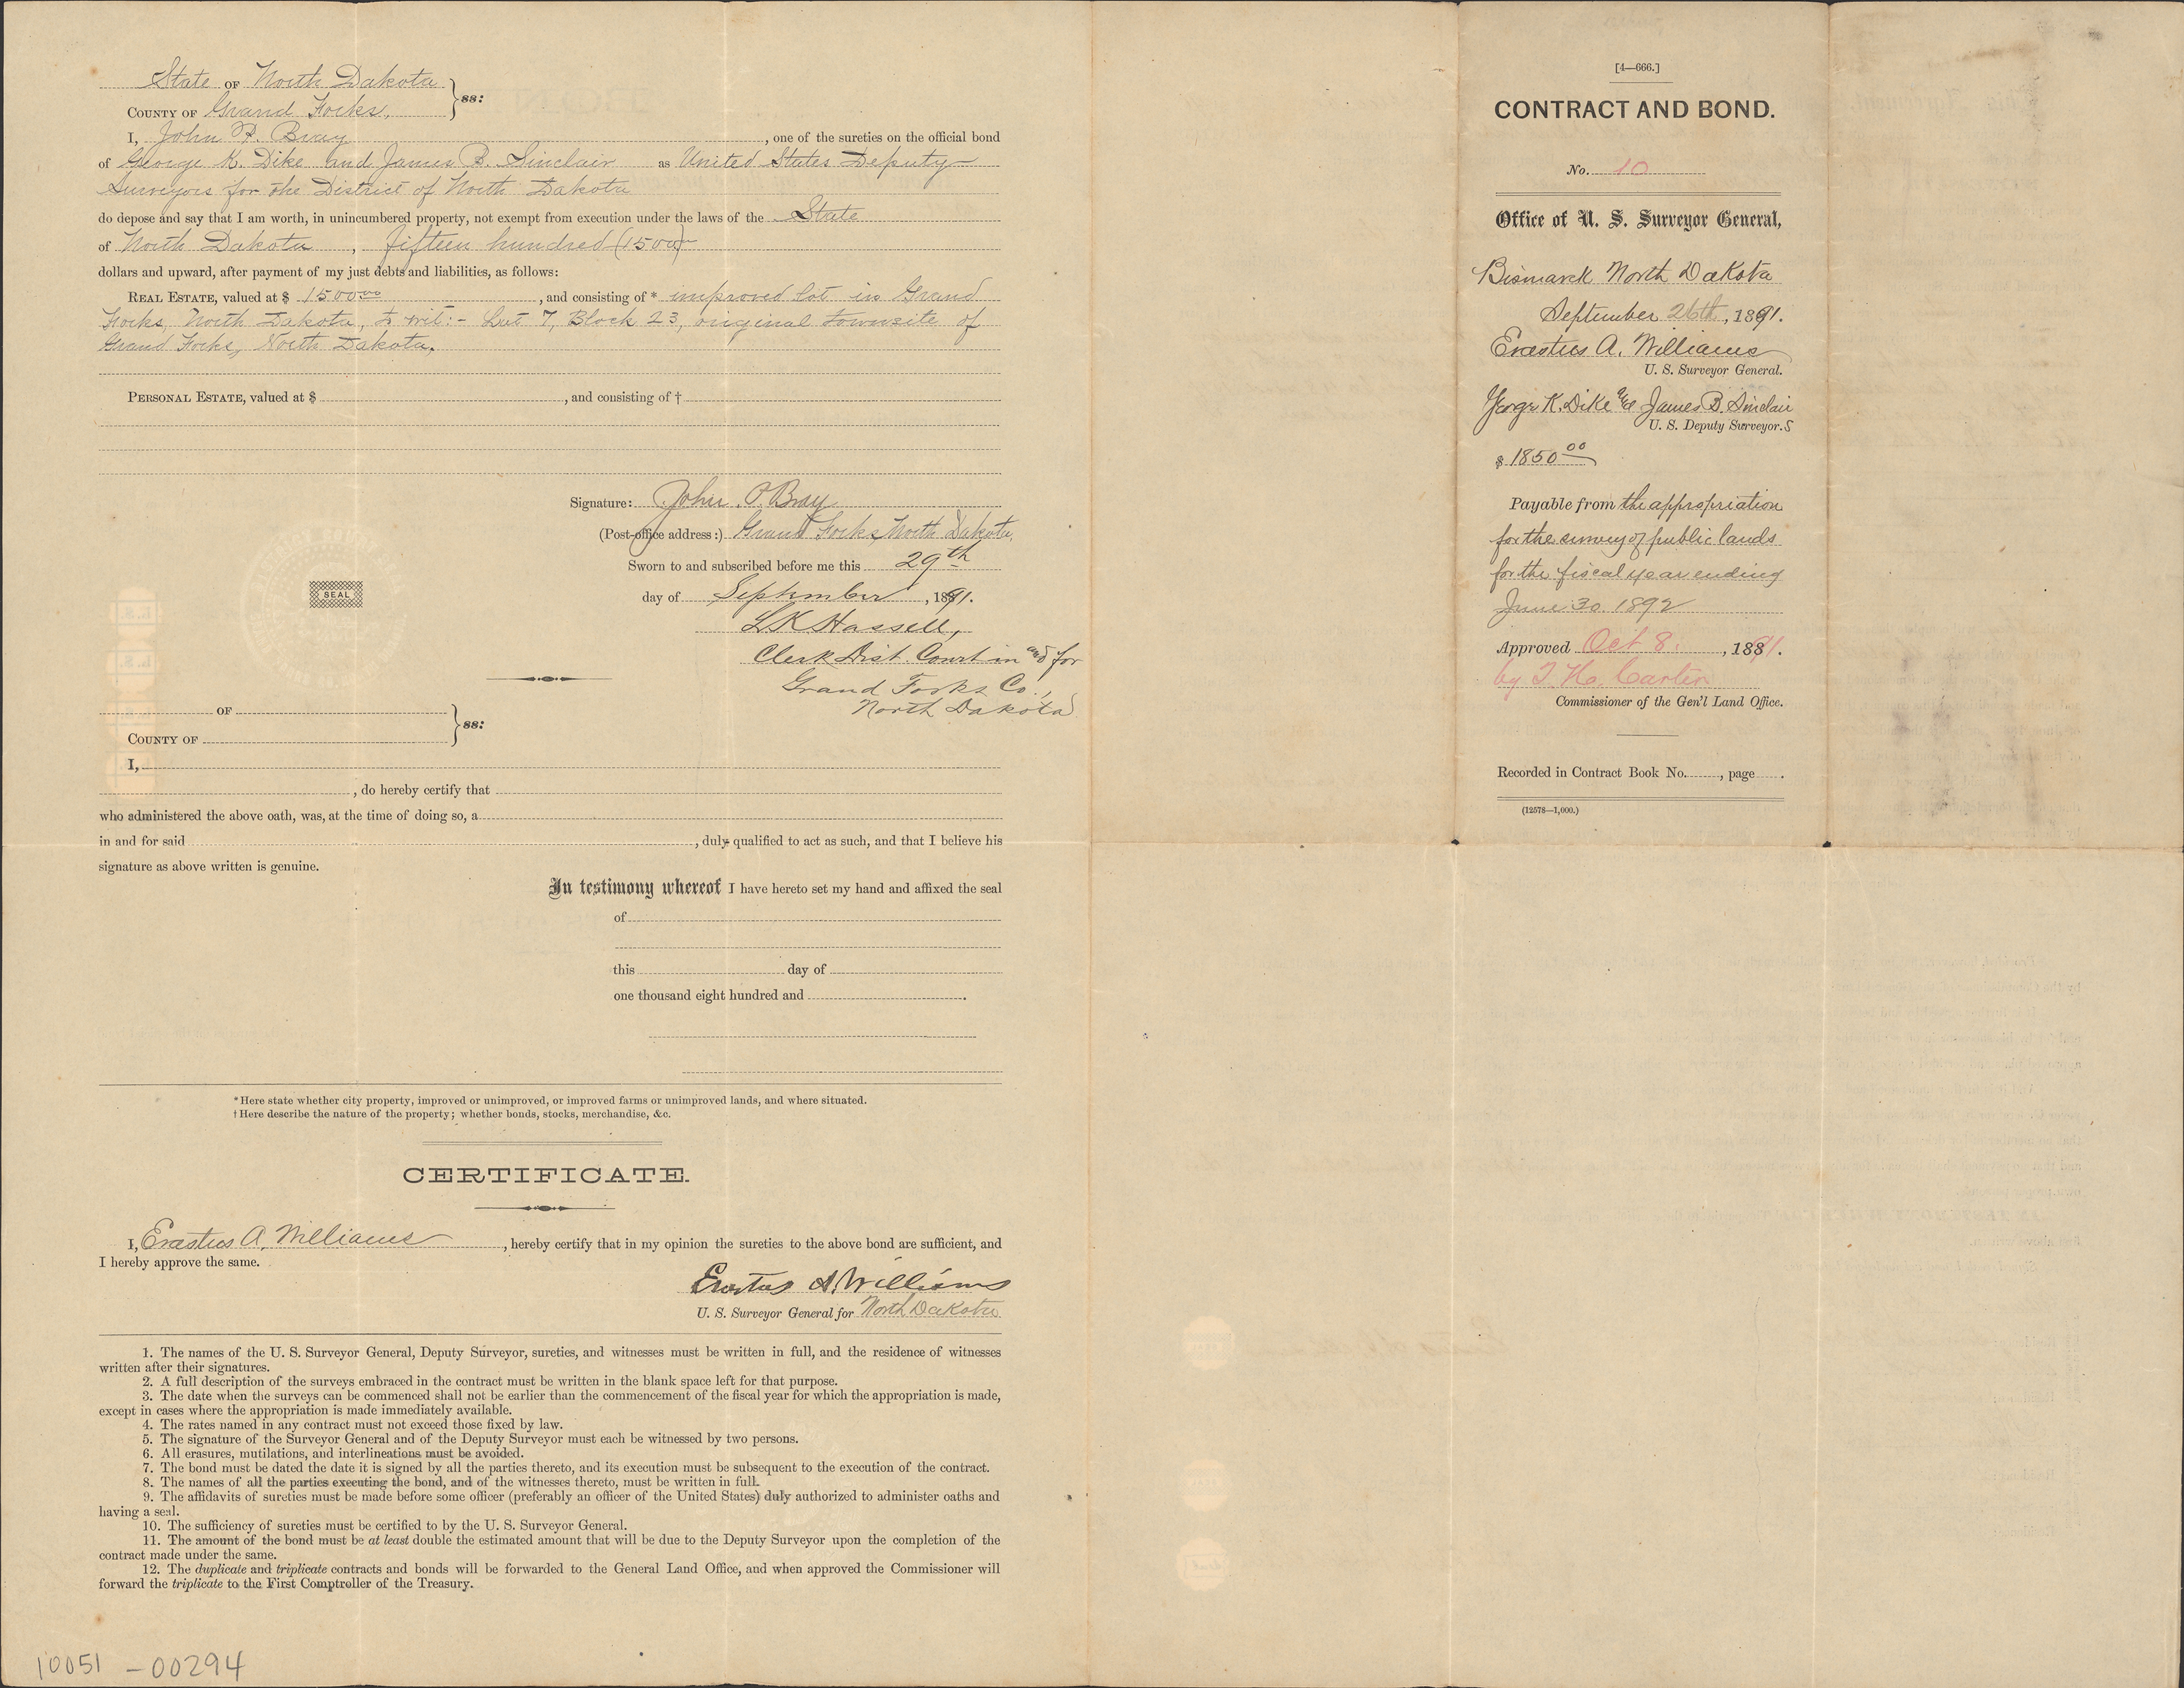 State OF North Dakota
COUNTY OF Grand Forks, } ss:
I, John P. Bray, one of the sureties on the official bond
of George K. Dike and James B. Sinclair as United States Deputy
Surveyors for the District of North Dakota
do depose and say that I am worth, in unincumbered property, not exempt from execution under the laws of the State
of North Dakota, fifteen hundred (1500)
dollars and upward, after payment of my just debts and liabilities, as follows:
REAL ESTATE, valued at $ 1500.00, and consisting of * improved lot in Grand
Forks, North Dakota, to wit:- Lot 7, Block 23, original townsite of
Grand Forks, North Dakota.
PERSONAL ESTATE, valued at $ , and consisting of †
Signature: John P. Bray
(Post-office address:) Grand Forks, North Dakota.
Sworn to and subscribed before me this 29th
day of September, 1891.
SEAL
L K Hassell,
Clerk Dist. Court in and for
Grand Forks Co.,
North Dakota
OF
COUNTY OF } ss:
I,
, do hereby certify that
who administered the above oath, was, at the time of doing so, a
in and for said , duly qualified to act as such, and that I believe his
signature as above written is genuine.
In testimony whereof I have hereto set my hand and affixed the seal
of
this day of
one thousand eight hundred and .
* Here state whether city property, improved or unimproved, or improved farms or unimproved lands, and where situated.
† Here describe the nature of the property; whether bonds, stocks, merchandise, &c.
CERTIFICATE.
I, Erastus A. Williams, hereby certify that in my opinion the sureties to the above bond are sufficient, and
I hereby approve the same.
Erastus A. Williams
U. S. Surveyor General for North Dakota
1. The names of the U. S. Surveyor General, Deputy Surveyor, sureties, and witnesses must be written in full, and the residence of witnesses
written after their signatures.
2. A full description of the surveys embraced in the contract must be written in the blank space left for that purpose.
3. The date when the surveys can be commenced shall not be earlier than the commencement of the fiscal year for which the appropriation is made,
except in cases where the appropriation is made immediately available.
4. The rates named in any contract must not exceed those fixed by law.
5. The signature of the Surveyor General and of the Deputy Surveyor must each be witnessed by two persons.
6. All erasures, mutilations, and interlineations must be avoided.
7. The bond must be dated the date it is signed by all the parties thereto, and its execution must be subsequent to the execution of the contract.
8. The names of all the parties executing the bond, and of the witnesses thereto, must be written in full.
9. The affidavits of sureties must be made before some officer (preferably an officer of the United States) duly authorized to administer oaths and
having a seal.
10. The sufficiency of sureties must be certified to by the U. S. Surveyor General.
11. The amount of the bond must be at least double the estimated amount that will be due to the Deputy Surveyor upon the completion of the
contract made under the same.
12. The duplicate and triplicate contracts and bonds will be forwarded to the General Land Office, and when approved the Commissioner will
forward the triplicate to the First Comptroller of the Treasury.
10051 - 00294
[4—666.]
CONTRACT AND BOND.
No. 10
Office of U. S. Surveyor General,
Bismarck North Dakota
September 26th, 1891.
Erastus A. Williams
U. S. Surveyor General.
George K. Dike and James B. Sinclair
U. S. Deputy Surveyor.s
$ 1850.00
Payable from the appropriation
for the survey of public lands
for the fiscal year ending
June 30. 1892
Approved Oct 8., 1891.
by T. H. Carter
Commissioner of the Gen'l Land Office.
Recorded in Contract Book No. , page .
(12578—1,000.)